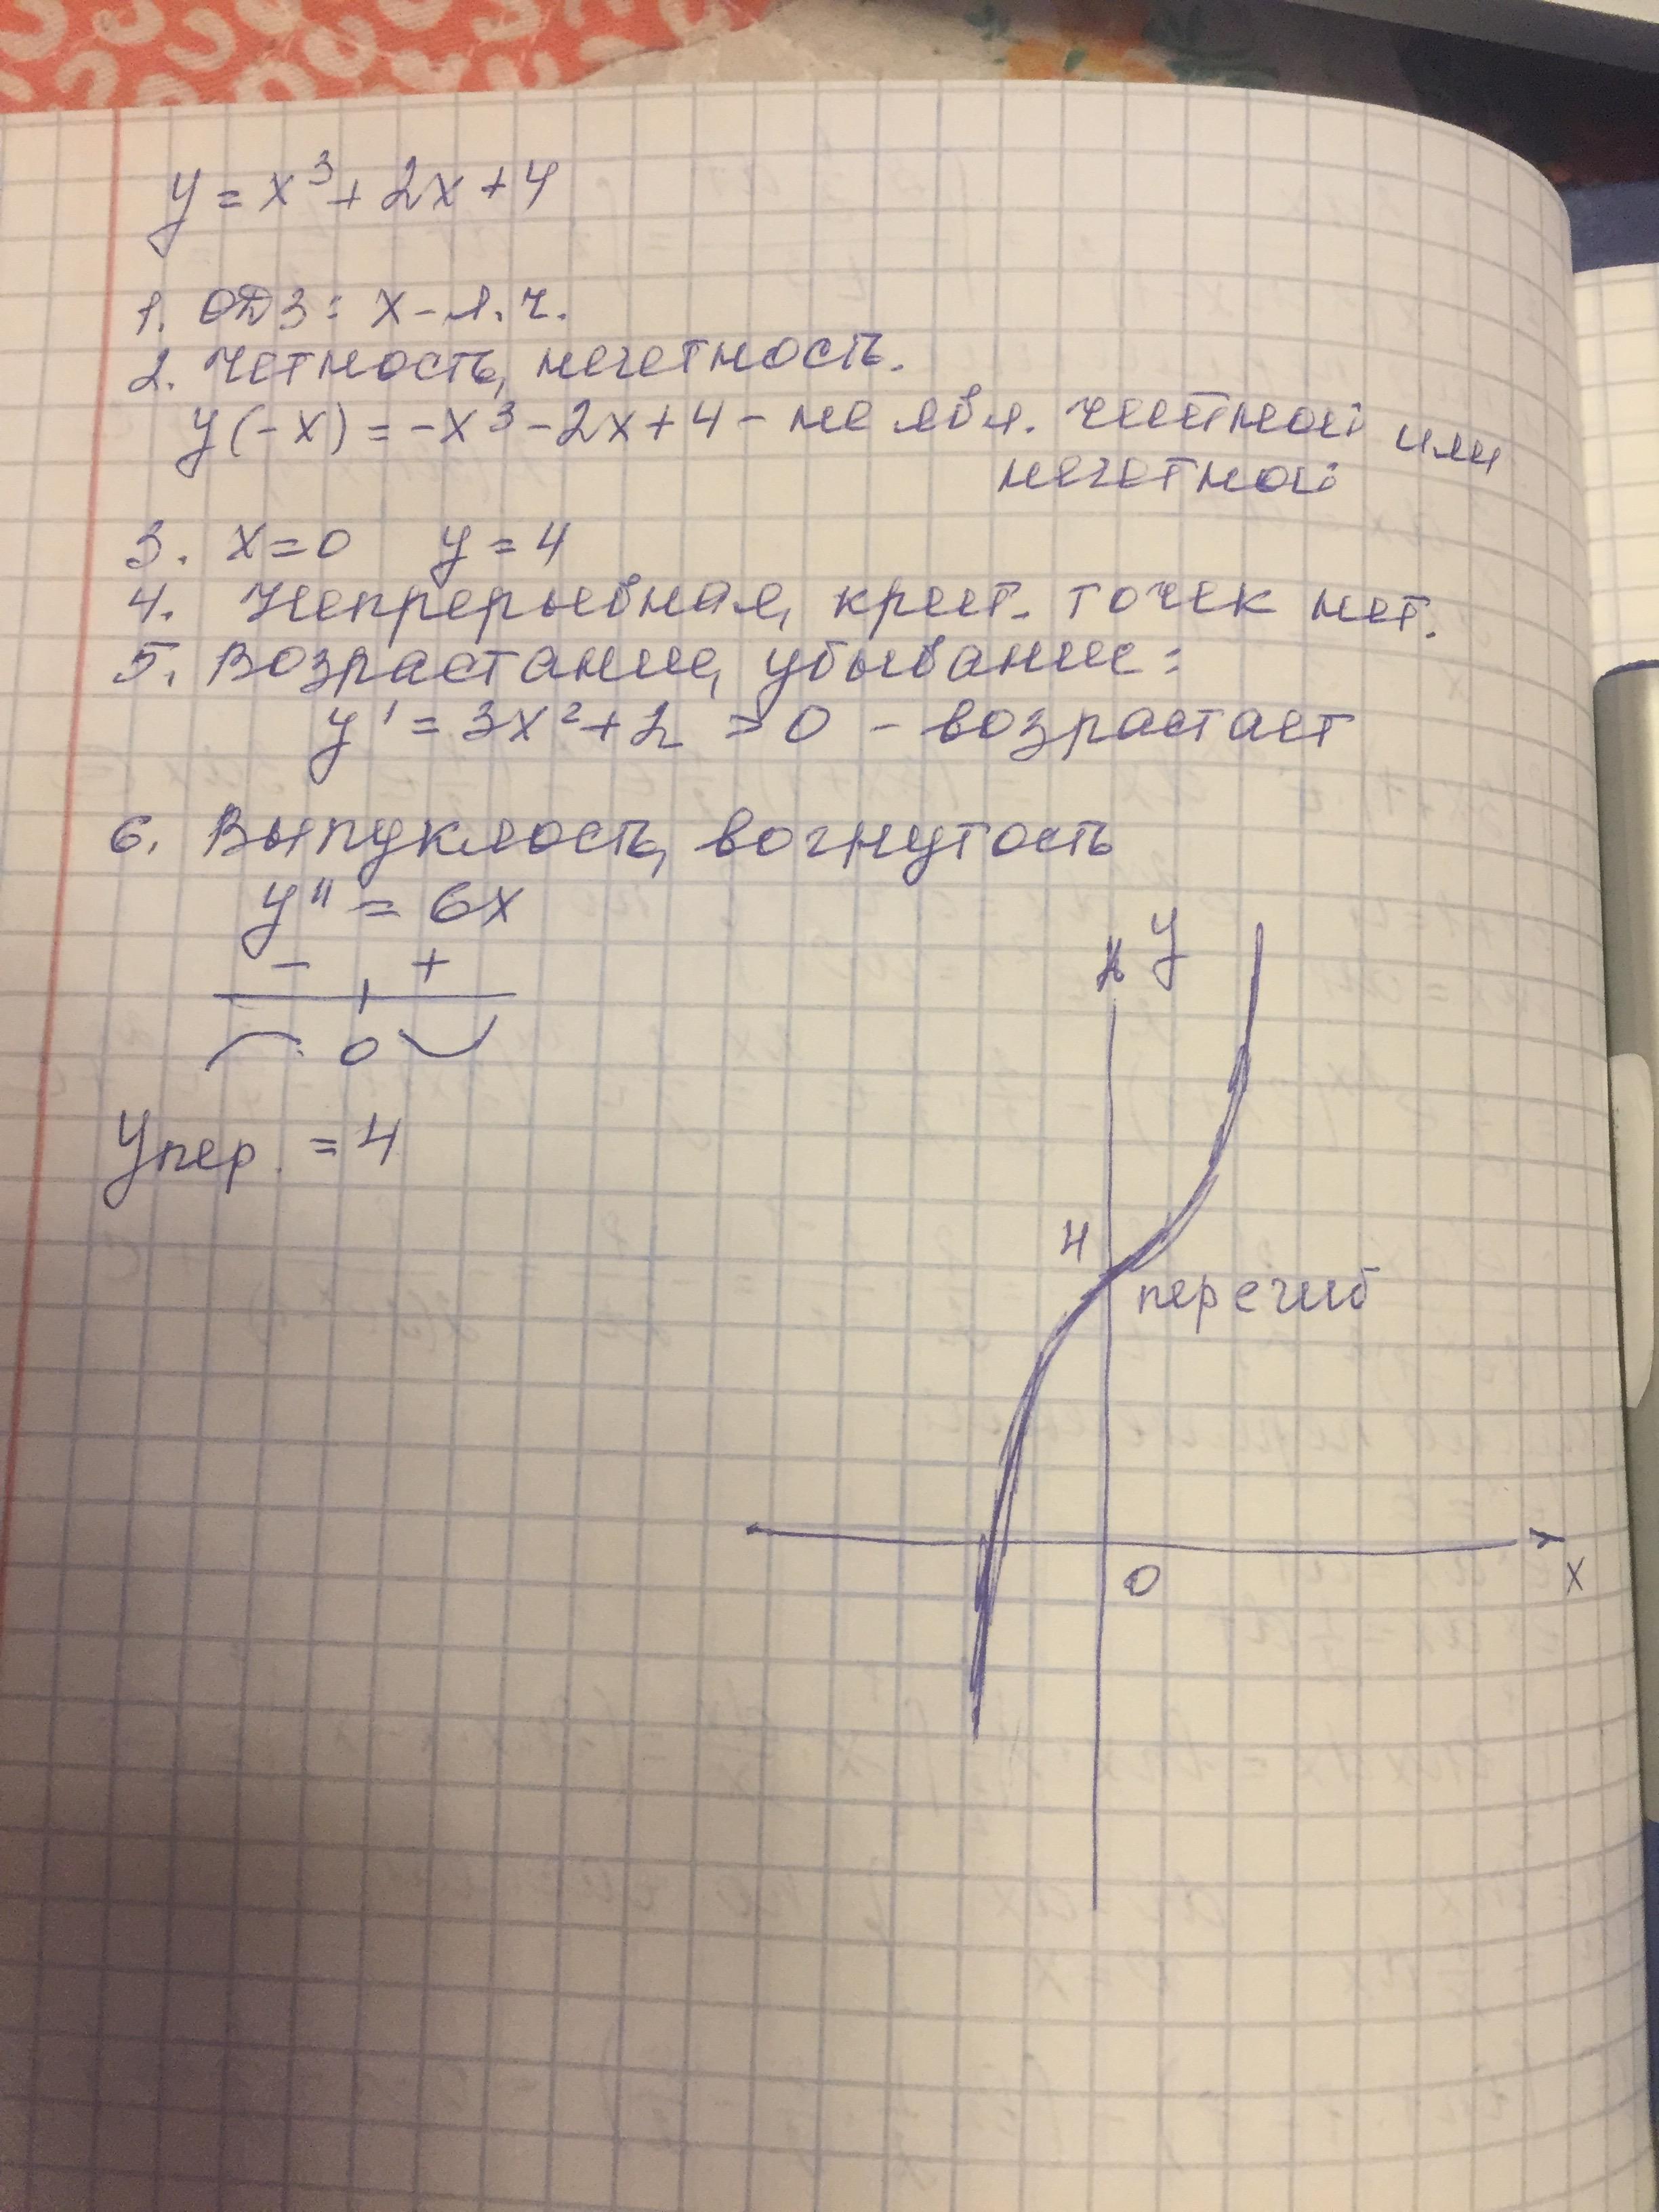 y = x³ + 2x + 4
1. ОДЗ: x – л.ч.
2. Четность, нечетность.
y(-x) = -x³ - 2x + 4 - не явл. четной или
нечетной
3. x = 0 y = 4
4. Непрерывная, крит. точек нет.
5. Возрастание, убывание:
y' = 3x² + 2 > 0 - возрастает
6. Выпуклость, вогнутость
y'' = 6x
- +
0
yпер. = 4
y
4
перегиб
0
x